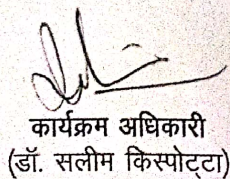 कार्यक्रम अधिकारी
(डॉ. सलीम किस्पोट्टा)